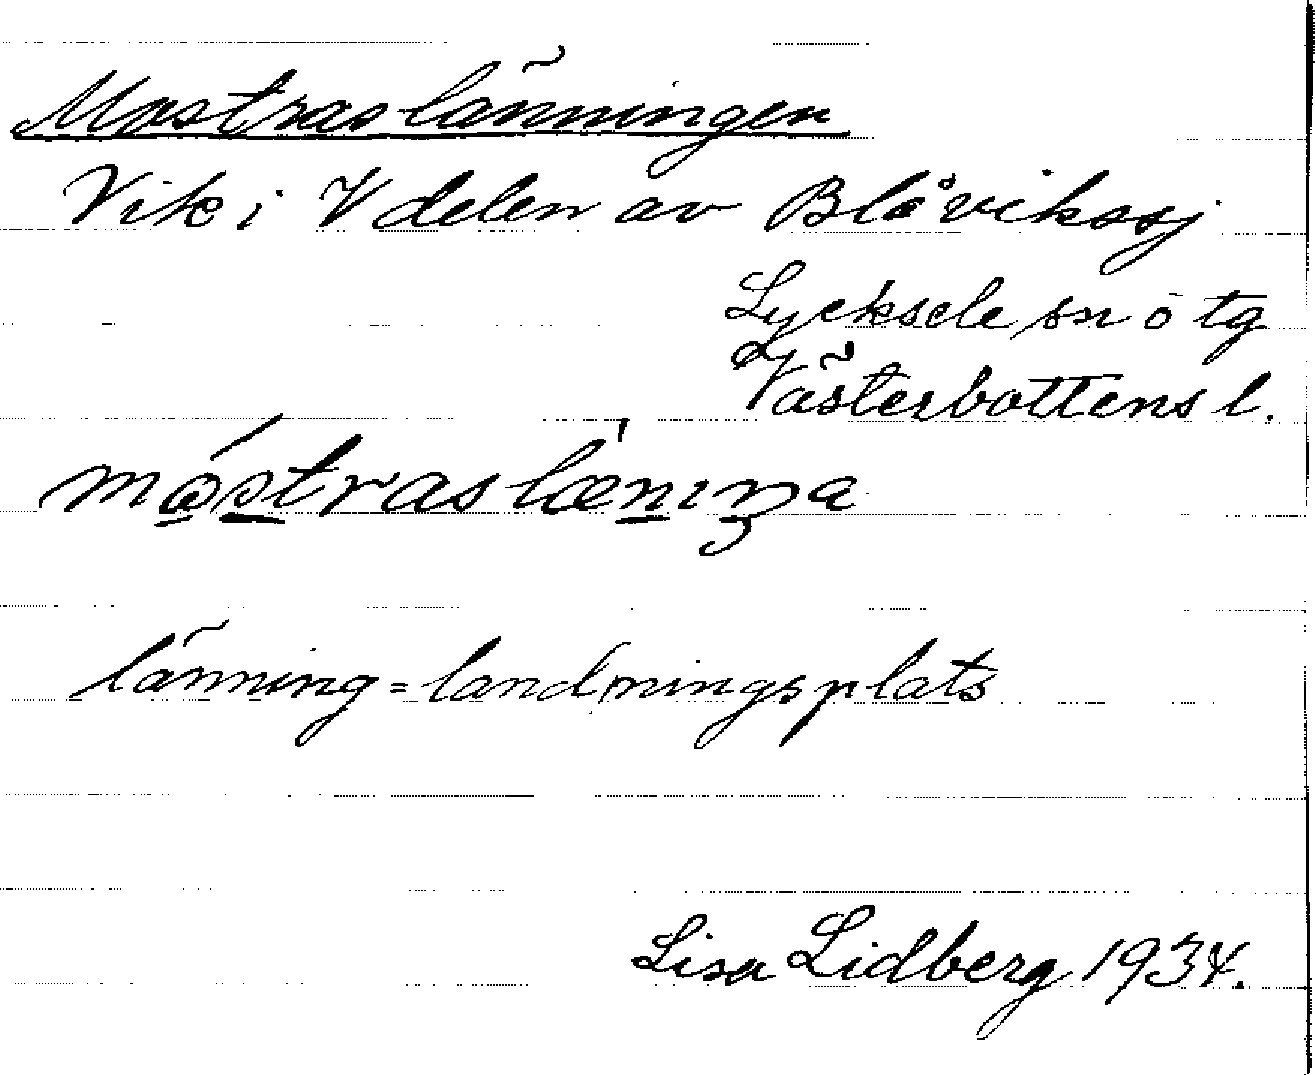 Mostraslänningen
Vik i V delen av Blåvikssj
Lycksele sn o tg
Västerbottens l.
länning = landningsplats
Lisa Lidberg 1934.